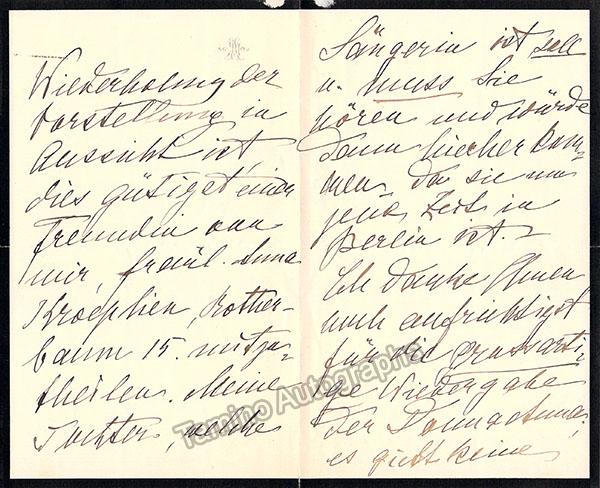 Wiederholung der
Vorstellung in
Aussicht ist,
dies gütigst einer
Freundin von
mir, Fräul. Anna
Kroephien, Rother-
baum 15. mitzu-
theilen. Meine
Tochter, welche
Sängerin ist soll
u. muss Sie
hören und würde
dann hierher kom-
men, da sie um
jene Zeit in
Berlin ist. –
Ich danke Ihnen
noch aufrichtigst
für die grossarti-
ge Wiedergabe
der Donna Anna;
es giebt keine
Tamino Autographs